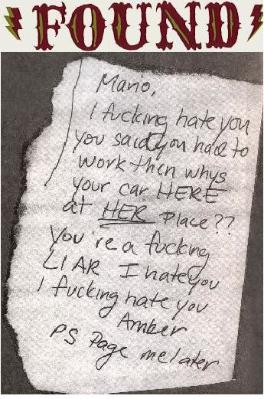 FOUND
Mario,
I fucking hate you
you said you had to
work then whys
your car HERE
at HER place??
You're a fucking
LIAR I hate you
I fucking hate you
Amber
PS Page me later